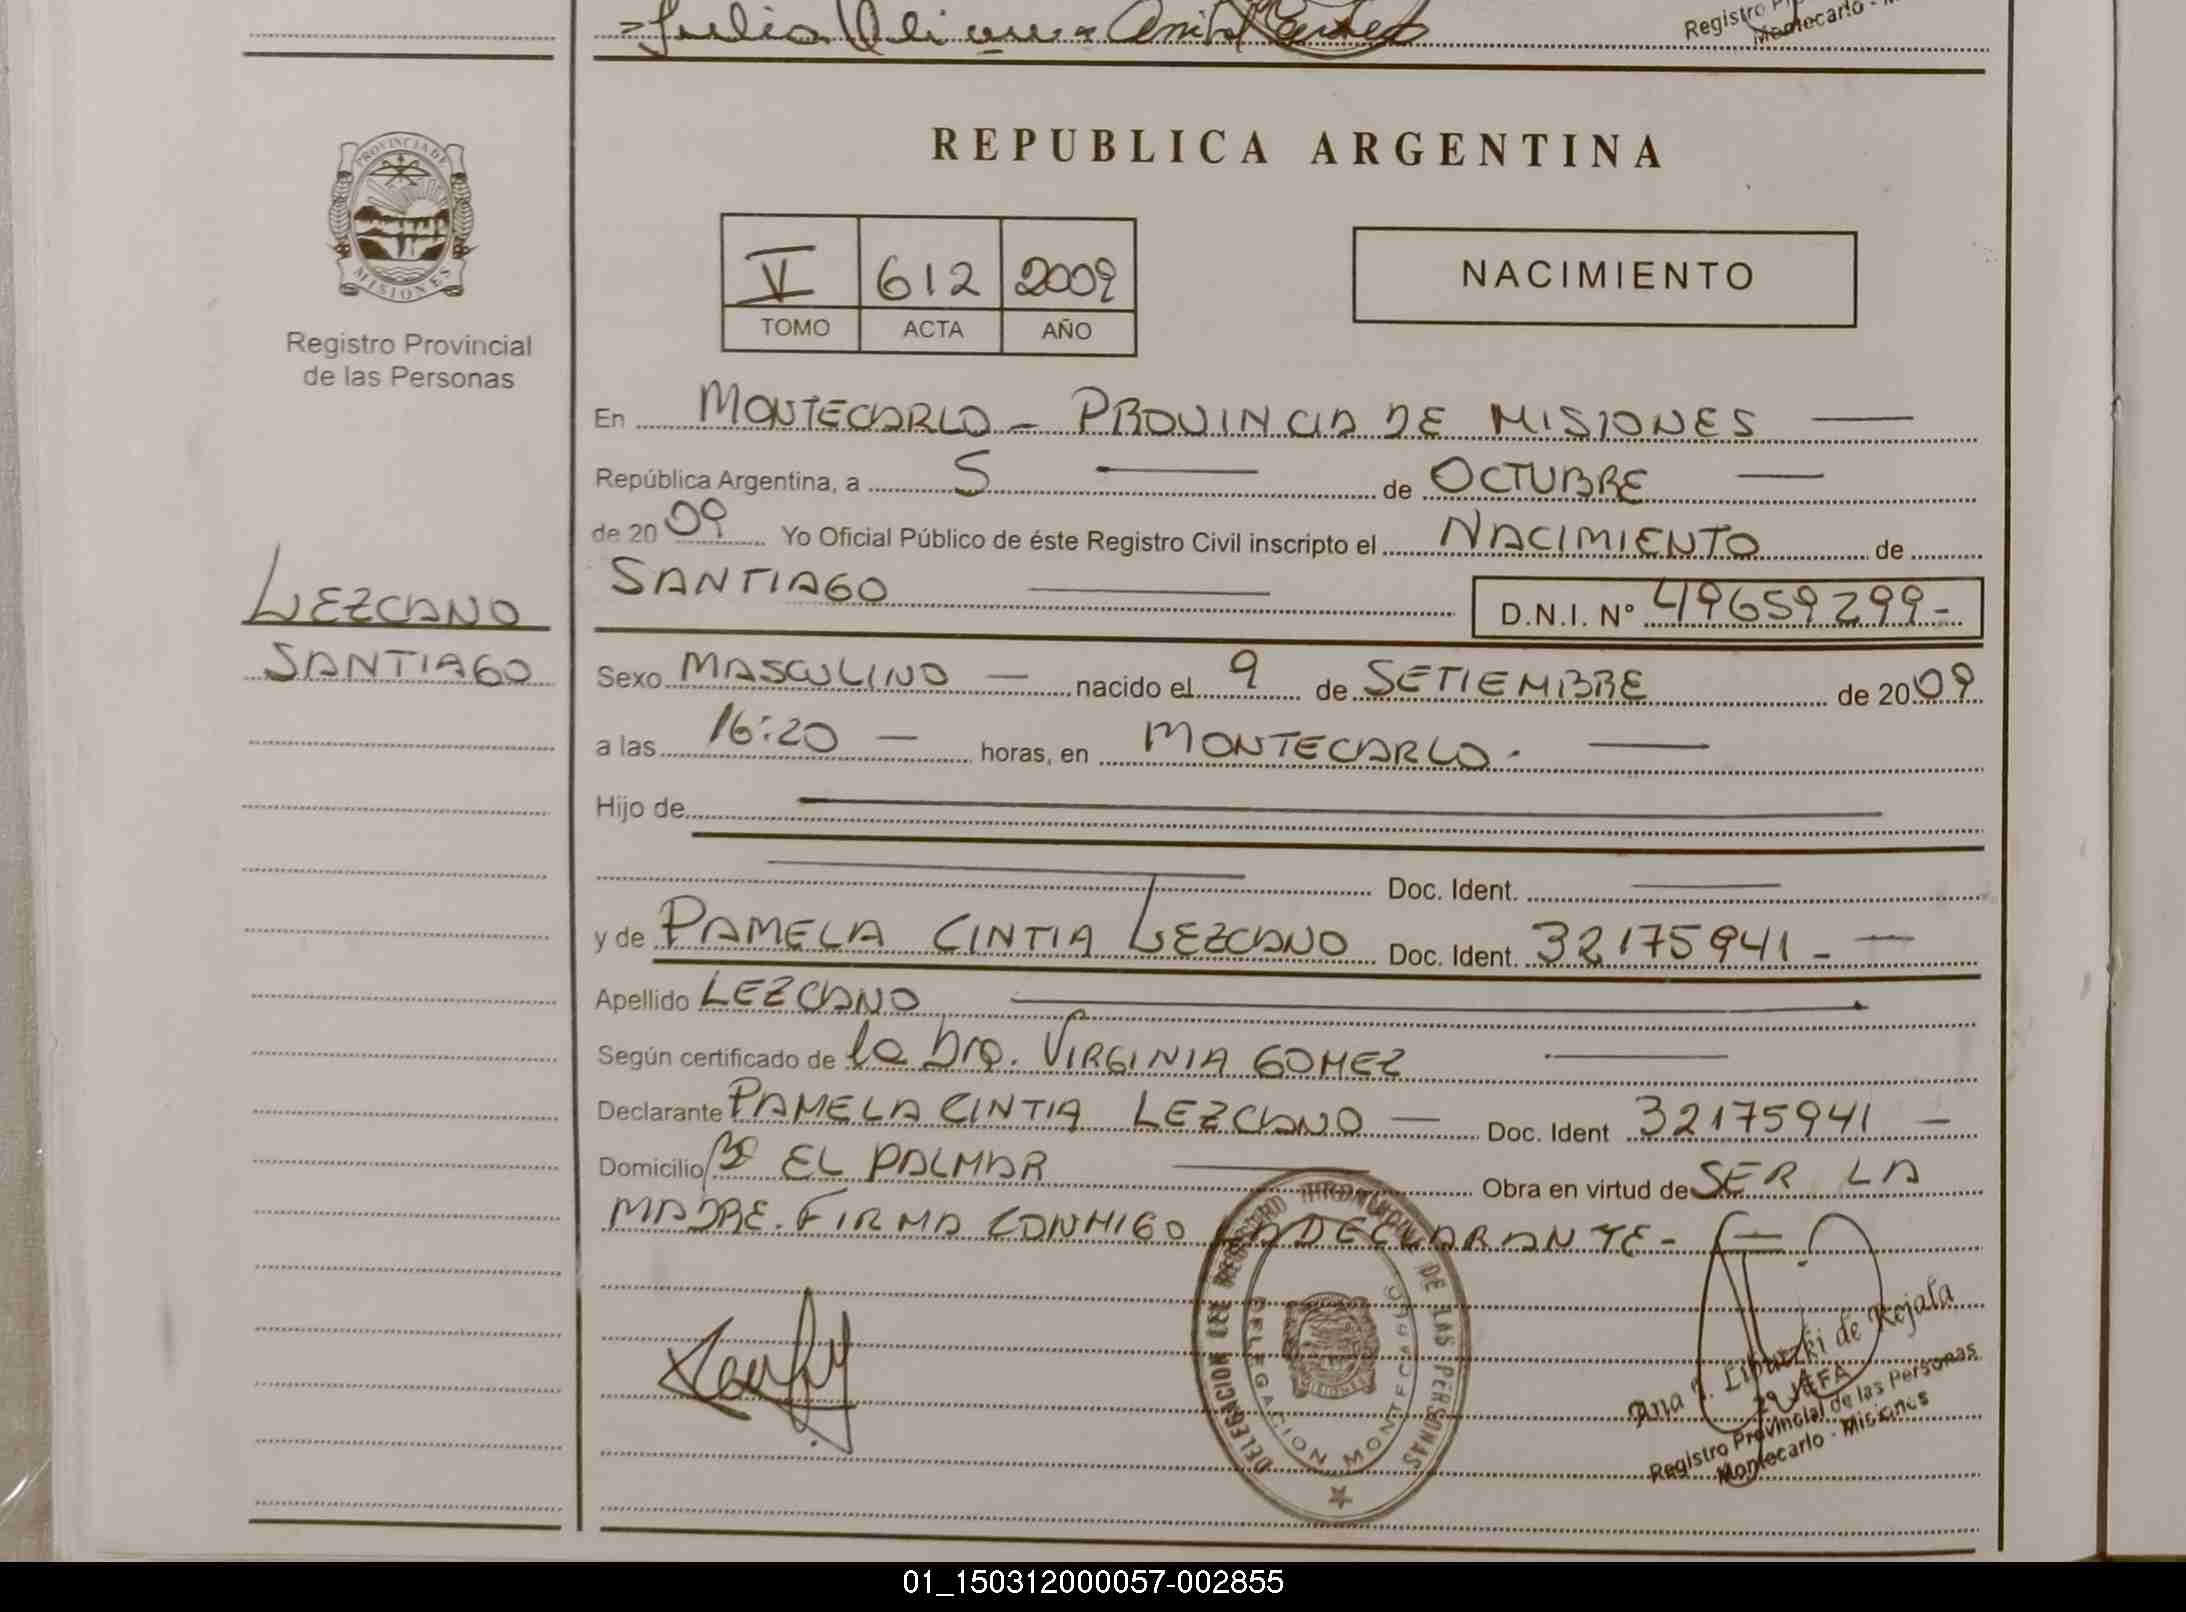 Registro P
Montecarlo - M
PROVINCIA DE
MISIONES
Registro Provincial
de las Personas
LEZCANO
SANTIAGO
REPUBLICA ARGENTINA
V 612 2009
TOMO ACTA AÑO
NACIMIENTO
En MONTECARLO - PROVINCIA DE MISIONES
República Argentina, a 5 de OCTUBRE
de 2009 Yo Oficial Público de éste Registro Civil inscripto el NACIMIENTO de
SANTIAGO D.N.I. Nº 49659299-
Sexo MASCULINO - nacido el 9 de SETIEMBRE de 2009
a las 16:20 - horas, en MONTECARLO.
Hijo de
Doc. Ident.
y de PAMELA CINTIA LEZCANO Doc. Ident. 32175941 -
Apellido LEZCANO
Según certificado de la Dra. VIRGINIA GOMEZ
Declarante PAMELA CINTIA LEZCANO - Doc. Ident 32175941 -
Domicilio Bº EL PALMAR Obra en virtud de SER LA
MADRE. FIRMA CONMIGO LA DECLARANTE-
DELEGACION DEL REGISTRO PROVINCIAL DE LAS PERSONAS
DELEGACION MONTECARLO
MISIONES
Ana de Rojala
2º JEFA
Registro Provincial de las Personas
Montecarlo - Misiones
01_150312000057-002855